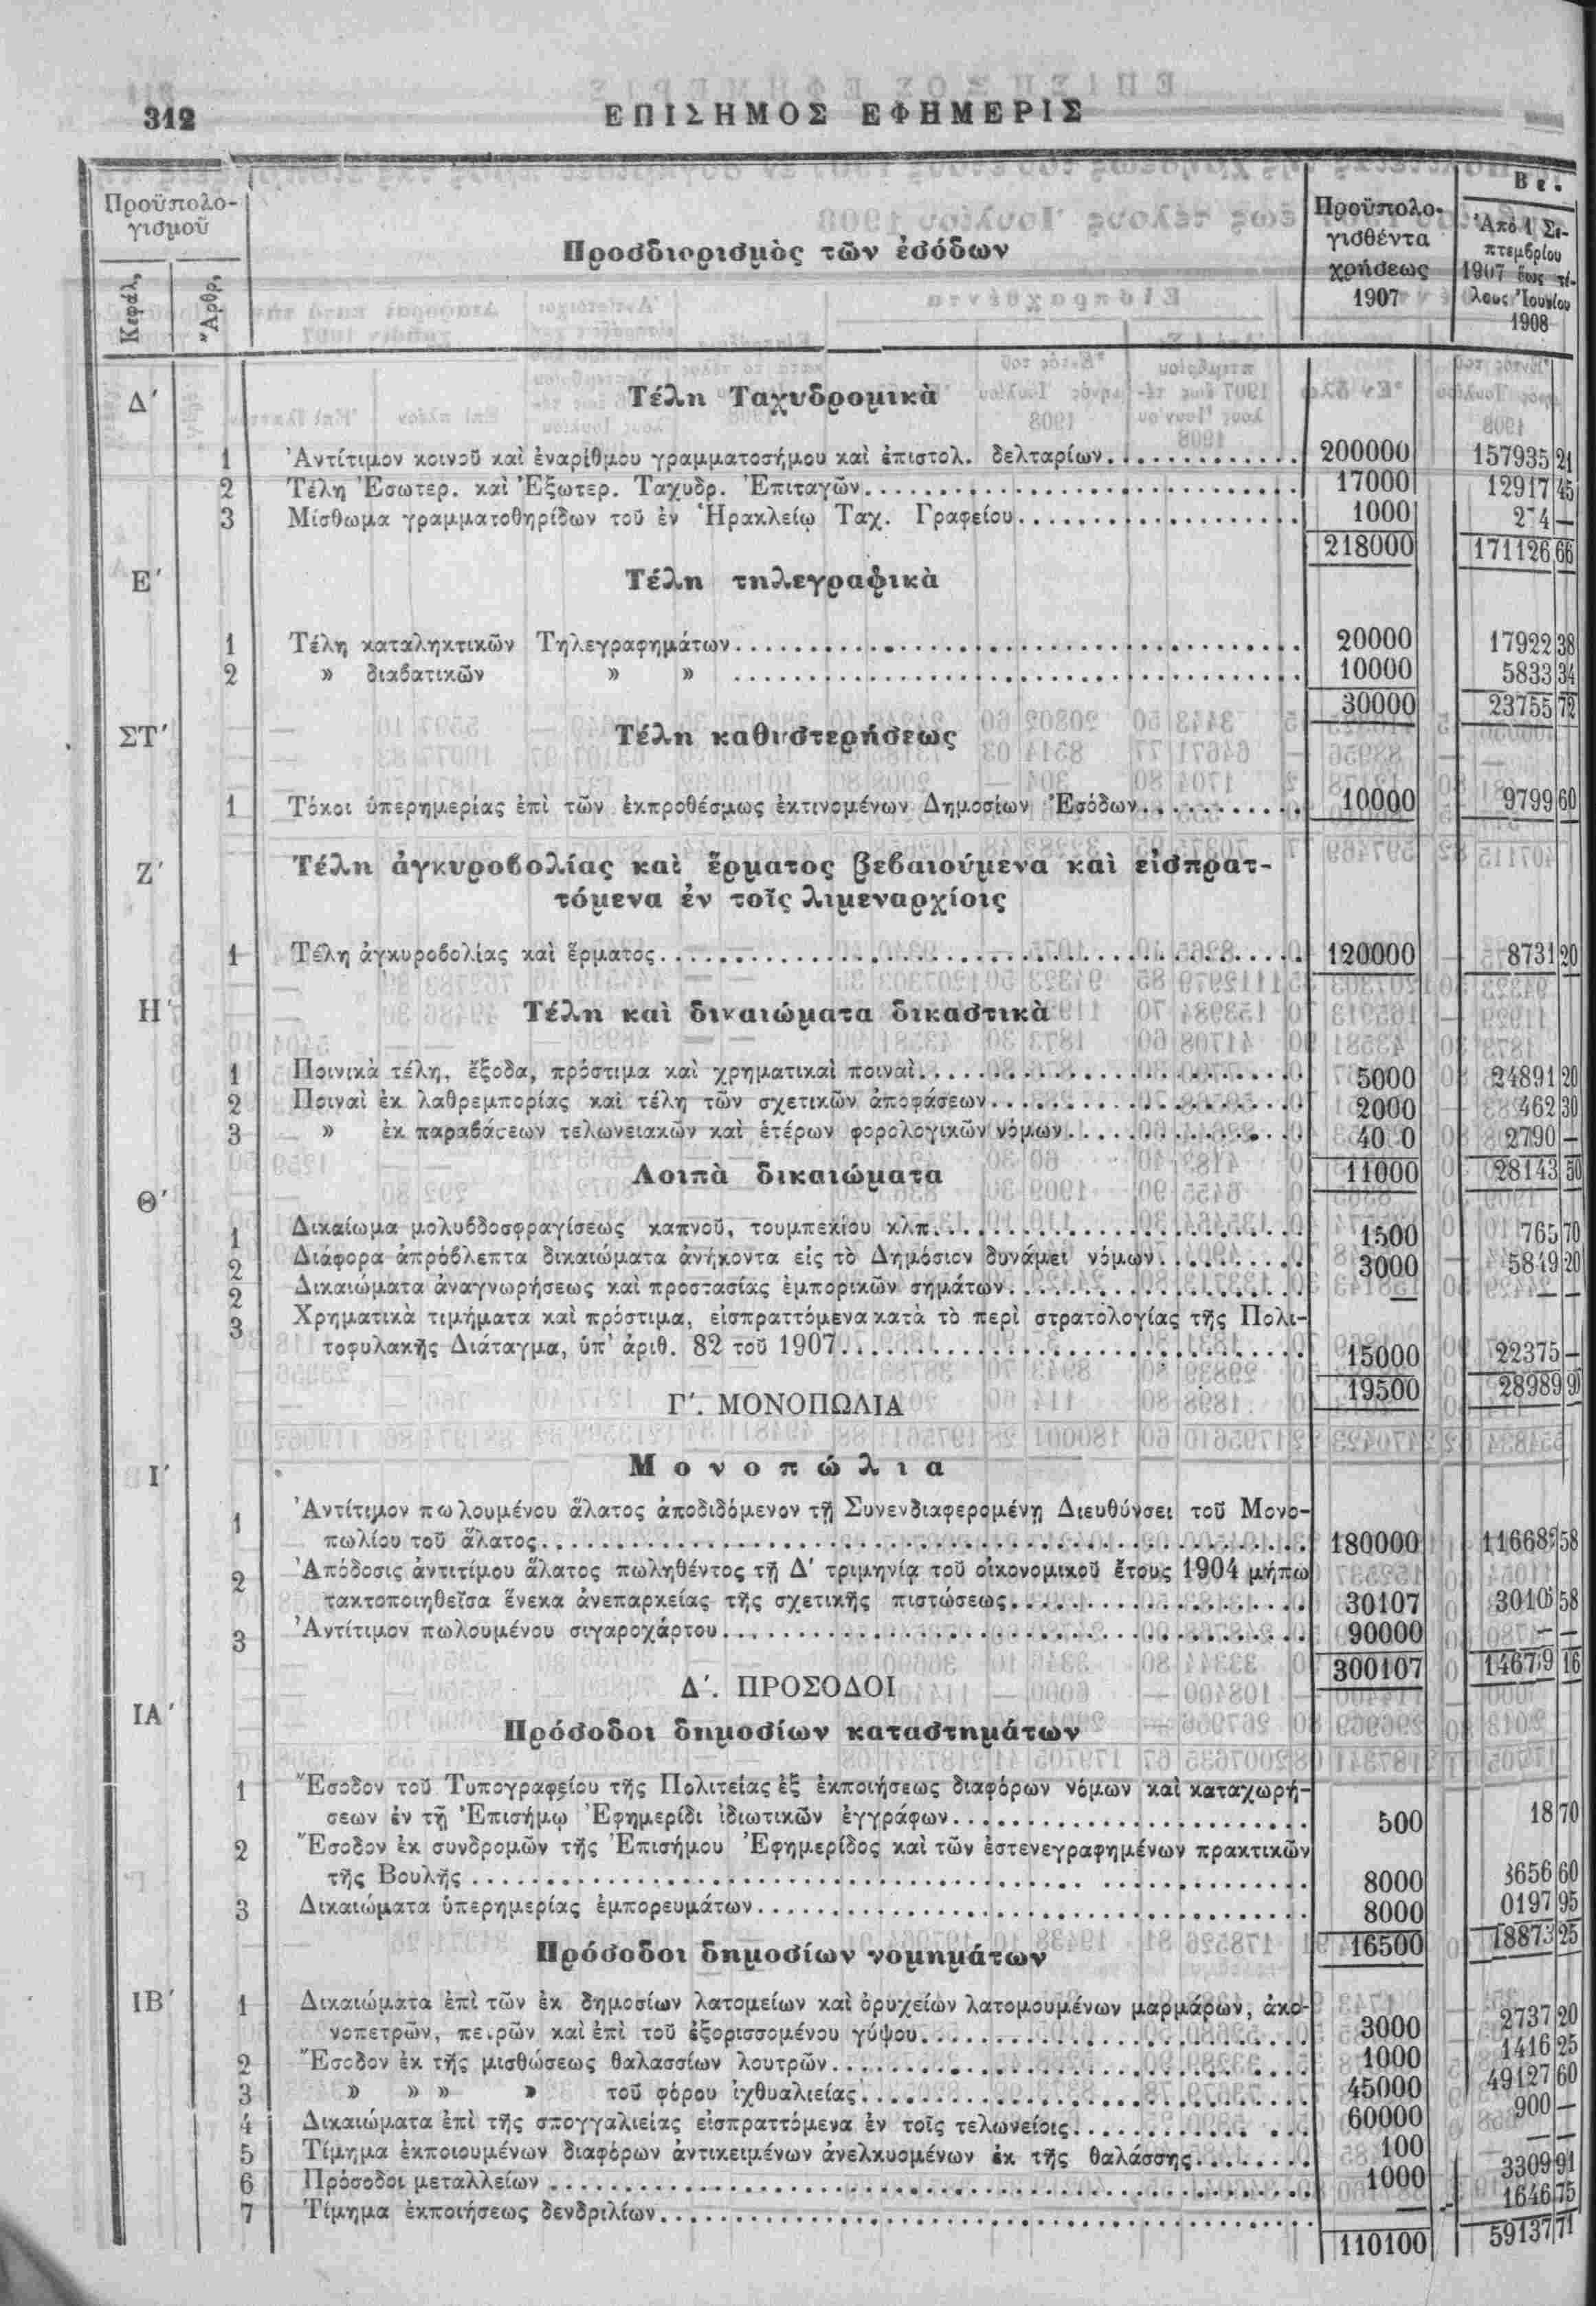 312
ΕΠΙΣΗΜΟΣ ΕΦΗΜΕΡΙΣ
Προϋπολο-
γισμοῦ
Κεφάλ,
Ἄρθρ,
Προσδιορισμὸς τῶν ἐσόδων
Προϋπολο-
γισθέντα
χρήσεως
1907
Βε.
Ἀπὸ 1 Σε-
πτεμβρίου
1907 ἕως τέ-
λους Ἰουνίου
1908
Δʹ Τέλη Ταχυδρομικὰ
1 Ἀντίτιμον κοινοῦ καὶ ἐναρίθμου γραμματοσήμου καὶ ἐπιστολ. δελταρίων 200000 157935 21
2 Τέλη Ἐσωτερ. καὶ Ἐξωτερ. Ταχυδρ. Ἐπιταγῶν 17000 12917 45
3 Μίσθωμα γραμματοθηρίδων τοῦ ἐν Ἡρακλείῳ Ταχ. Γραφείου 1000 —
218000 171126 66
Εʹ Τέλη τηλεγραφικὰ
1 Τέλη καταληκτικῶν Τηλεγραφημάτων 20000 17922 38
2 » διαβατικῶν » » 10000 5833 34
30000 23755 72
ΣΤʹ Τέλη καθυστερήσεως
1 Τόκοι ὑπερημερίας ἐπὶ τῶν ἐκπροθέσμως ἐκτινομένων Δημοσίων Ἐσόδων 10000 9799 60
Ζʹ Τέλη ἀγκυροβολίας καὶ ἕρματος βεβαιούμενα καὶ εἰσπρατ-
τόμενα ἐν τοῖς λιμεναρχίοις
1 Τέλη ἀγκυροβολίας καὶ ἕρματος 120000 8731 20
Ηʹ Τέλη καὶ δικαιώματα δικαστικὰ
1 Ποινικὰ τέλη, ἔξοδα, πρόστιμα καὶ χρηματικαὶ ποιναὶ 5000 24891 20
2 Ποιναὶ ἐκ λαθρεμπορίας καὶ τέλη τῶν σχετικῶν ἀποφάσεων 2000 462 30
3 » ἐκ παραβάσεων τελωνειακῶν καὶ ἑτέρων φορολογικῶν νόμων 40 0 2790 —
11000 28143 50
Θʹ Λοιπὰ δικαιώματα
1 Δικαίωμα μολυβδοσφραγίσεως καπνοῦ, τουμπεκίου κλπ. 1500 765 70
2 Διάφορα ἀπρόβλεπτα δικαιώματα ἀνήκοντα εἰς τὸ Δημόσιον δυνάμει νόμων 3000 5849 20
2 Δικαιώματα ἀναγνωρήσεως καὶ προστασίας ἐμπορικῶν σημάτων — — —
3 Χρηματικὰ τιμήματα καὶ πρόστιμα, εἰσπραττόμενα κατὰ τὸ περὶ στρατολογίας τῆς Πολι-
τοφυλακῆς Διάταγμα, ὑπʼ ἀριθ. 82 τοῦ 1907 15000 22375 —
19500 28989 90
Γʹ. ΜΟΝΟΠΩΛΙΑ
Ιʹ Μονοπώλια
1 Ἀντίτιμον πωλουμένου ἅλατος ἀποδιδόμενον τῇ Συνενδιαφερομένῃ Διευθύνσει τοῦ Μονο-
πωλίου τοῦ ἅλατος 180000 58
2 Ἀπόδοσις ἀντιτίμου ἅλατος πωληθέντος τῇ Δʹ τριμηνίᾳ τοῦ οἰκονομικοῦ ἔτους 1904 μήπω
τακτοποιηθεῖσα ἕνεκα ἀνεπαρκείας τῆς σχετικῆς πιστώσεως 30107 30106 58
3 Ἀντίτιμον πωλουμένου σιγαροχάρτου 90000 — —
300107 16
Δʹ. ΠΡΟΣΟΔΟΙ
ΙΑʹ Πρόσοδοι δημοσίων καταστημάτων
1 Ἔσοδον τοῦ Τυπογραφείου τῆς Πολιτείας ἐξ ἐκποιήσεως διαφόρων νόμων καὶ καταχωρή-
σεων ἐν τῇ Ἐπισήμῳ Ἐφημερίδι ἰδιωτικῶν ἐγγράφων 500 18 70
2 Ἔσοδον ἐκ συνδρομῶν τῆς Ἐπισήμου Ἐφημερίδος καὶ τῶν ἐστενεγραφημένων πρακτικῶν
τῆς Βουλῆς 8000 8656 60
3 Δικαιώματα ὑπερημερίας ἐμπορευμάτων 8000 0197 95
16500 18873 25
Πρόσοδοι δημοσίων νομημάτων
ΙΒʹ 1 Δικαιώματα ἐπὶ τῶν ἐκ δημοσίων λατομείων καὶ ὀρυχείων λατομουμένων μαρμάρων, ἀκο-
νοπετρῶν, πετρῶν καὶ ἐπὶ τοῦ ἐξορισσομένου γύψου 3000 2737 20
2 Ἔσοδον ἐκ τῆς μισθώσεως θαλασσίων λουτρῶν 1000 1416 25
3 » » » » τοῦ φόρου ἰχθυαλιείας 45000 49127 60
4 Δικαιώματα ἐπὶ τῆς σπογγαλιείας εἰσπραττόμενα ἐν τοῖς τελωνείοις 60000 900 —
5 Τίμημα ἐκποιουμένων διαφόρων ἀντικειμένων ἀνελκυομένων ἐκ τῆς θαλάσσης 100 — —
6 Πρόσοδοι μεταλλείων 1000 3309 91
7 Τίμημα ἐκποιήσεως δενδριλίων — 1646 75
110100 59137 71